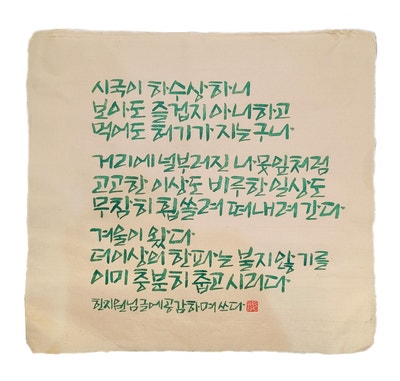 시국이 하수상하니
보아도 즐겁지 아니하고
먹어도 허기가 지는구나
거리에 널부러진 나뭇잎처럼
고고한 이상도 비루한 일상도
무참히 휩쓸려 떠내려 간다
겨울이 왔다
더이상의 한파는 불지않기를
이미 충분히 춥고 시리다
한지원님 글에 공감하며 쓰다